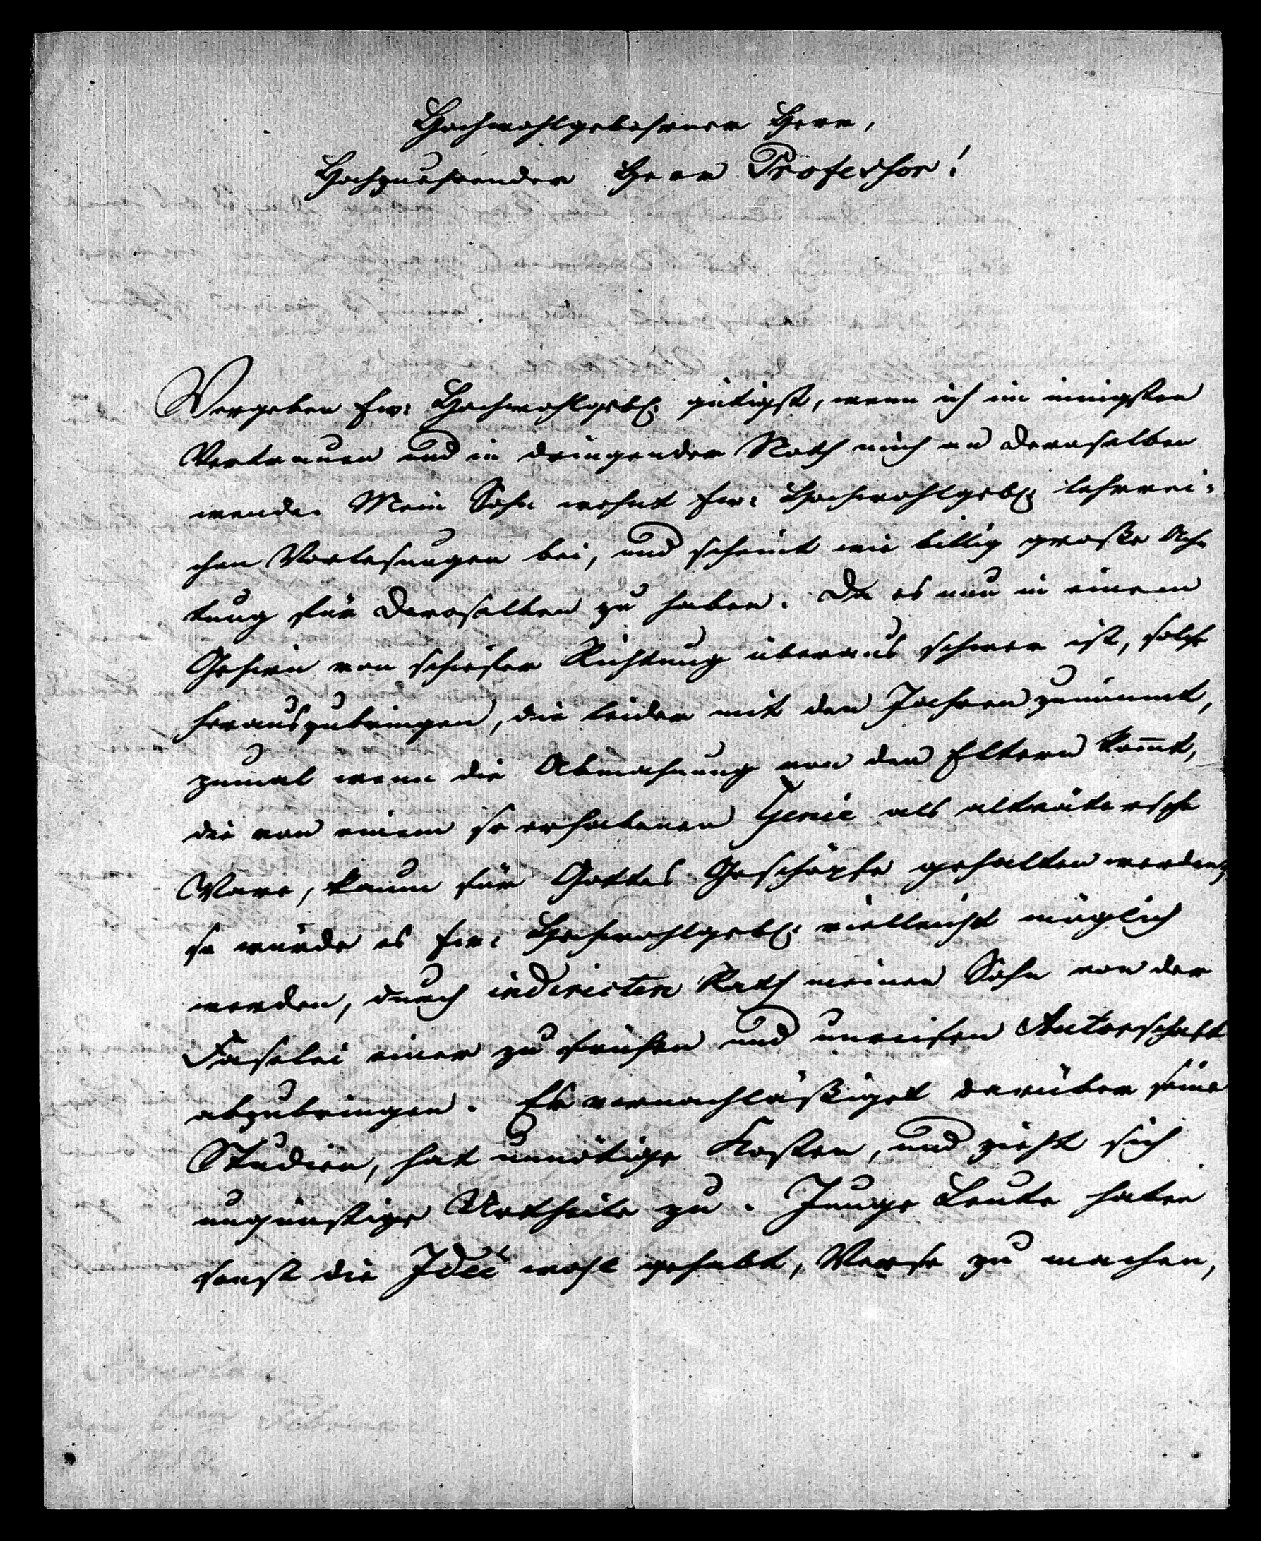 Hochwohlgebohrner Herr,
Hochzuehrender Herr Professor!
Vergeben Ew: Hochwohlgeb. gütigst, wenn ich im innigsten
Vertrauen und in dringender Noth mich an Denenselben
wende. Mein Sohn wohnt Ew: Hochwohlgeb. lehrrei-
chen Vorlesungen bei, und scheint wie billig große Ach
tung für Denenselben zu haben. Da es nun in einem
Gehirn von schiefer Richtung überaus schwer ist, solche
herauszubringen, die leider mit den Jahren zunimmt,
zumal wenn die Abmahnung von den Eltern komt,
die von einem so erhabenen Genie als altvätersche
Ware, kaum für Gottes Geschöpfe gehalten werden,
so würde es Ew: Hochwohlgeb. vielleicht möglich
werden, durch indirecten Rath meinen Sohn von der
Faselei einer zu frühen und unreifen Autorschaft
abzubringen. Er vernachläßiget darüber seine
Studien, hat unnötige Kosten, und zieht sich
ungünstige Urtheile zu. Junge Leute haben
sonst die Idee wohl gehabt, Verse zu machen,